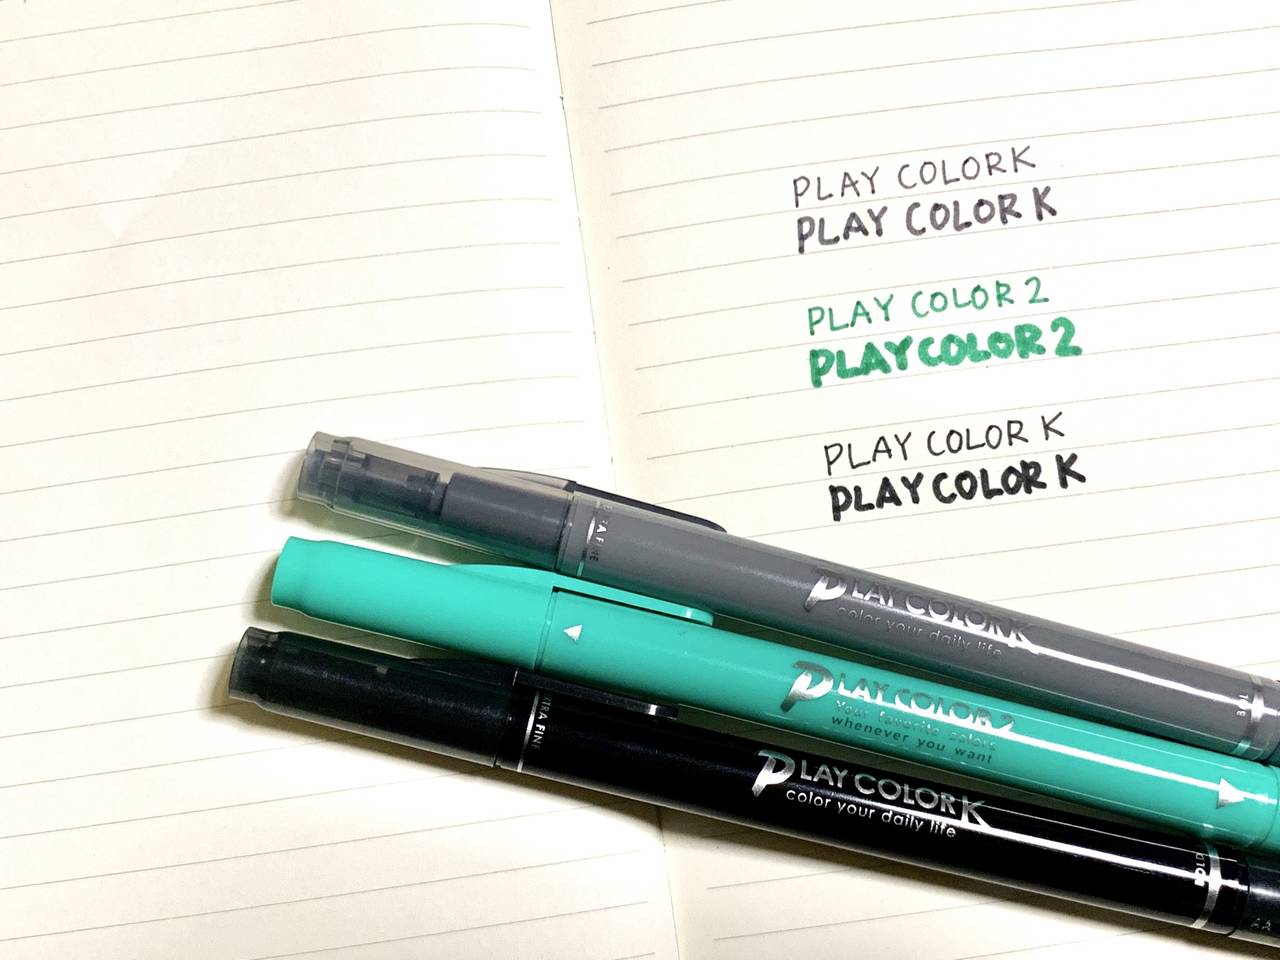 PLAY COLOR K
PLAY COLOR K
PLAY COLOR 2
PLAY COLOR 2
PLAY COLOR K
PLAY COLOR K
EXTRA FINE
PLAY COLOR K
color your daily life
PLAY COLOR 2
Your favorite colors
whenever you want
EXTRA FINE
PLAY COLOR K
color your daily life
BOLD